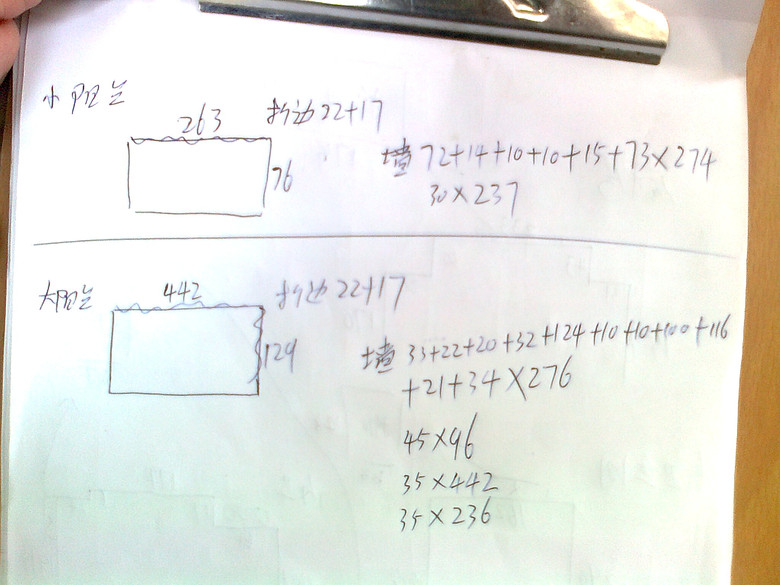 小阳兰
263 折边22+17
76
墙 72+14+10+10+15+73×274
30×237
大阳兰
442 折边22+17
129
墙 33+22+20+32+124+10+10+100+116
+21+34×276
45×96
35×442
35×236